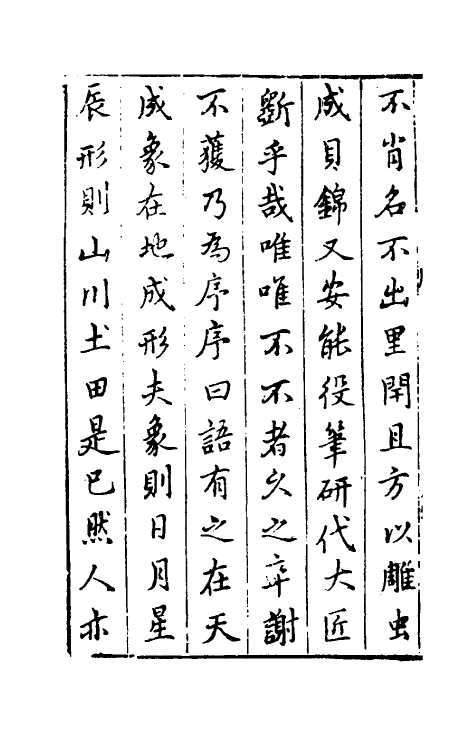 不肖名不出里閈且方以雕虫
成貝錦又安能役筆研代大匠
斵乎哉唯唯不不者久之卒謝
不獲乃為序序曰語有之在天
成象在地成形夫象則日月星
辰形則山川土田是已然人亦